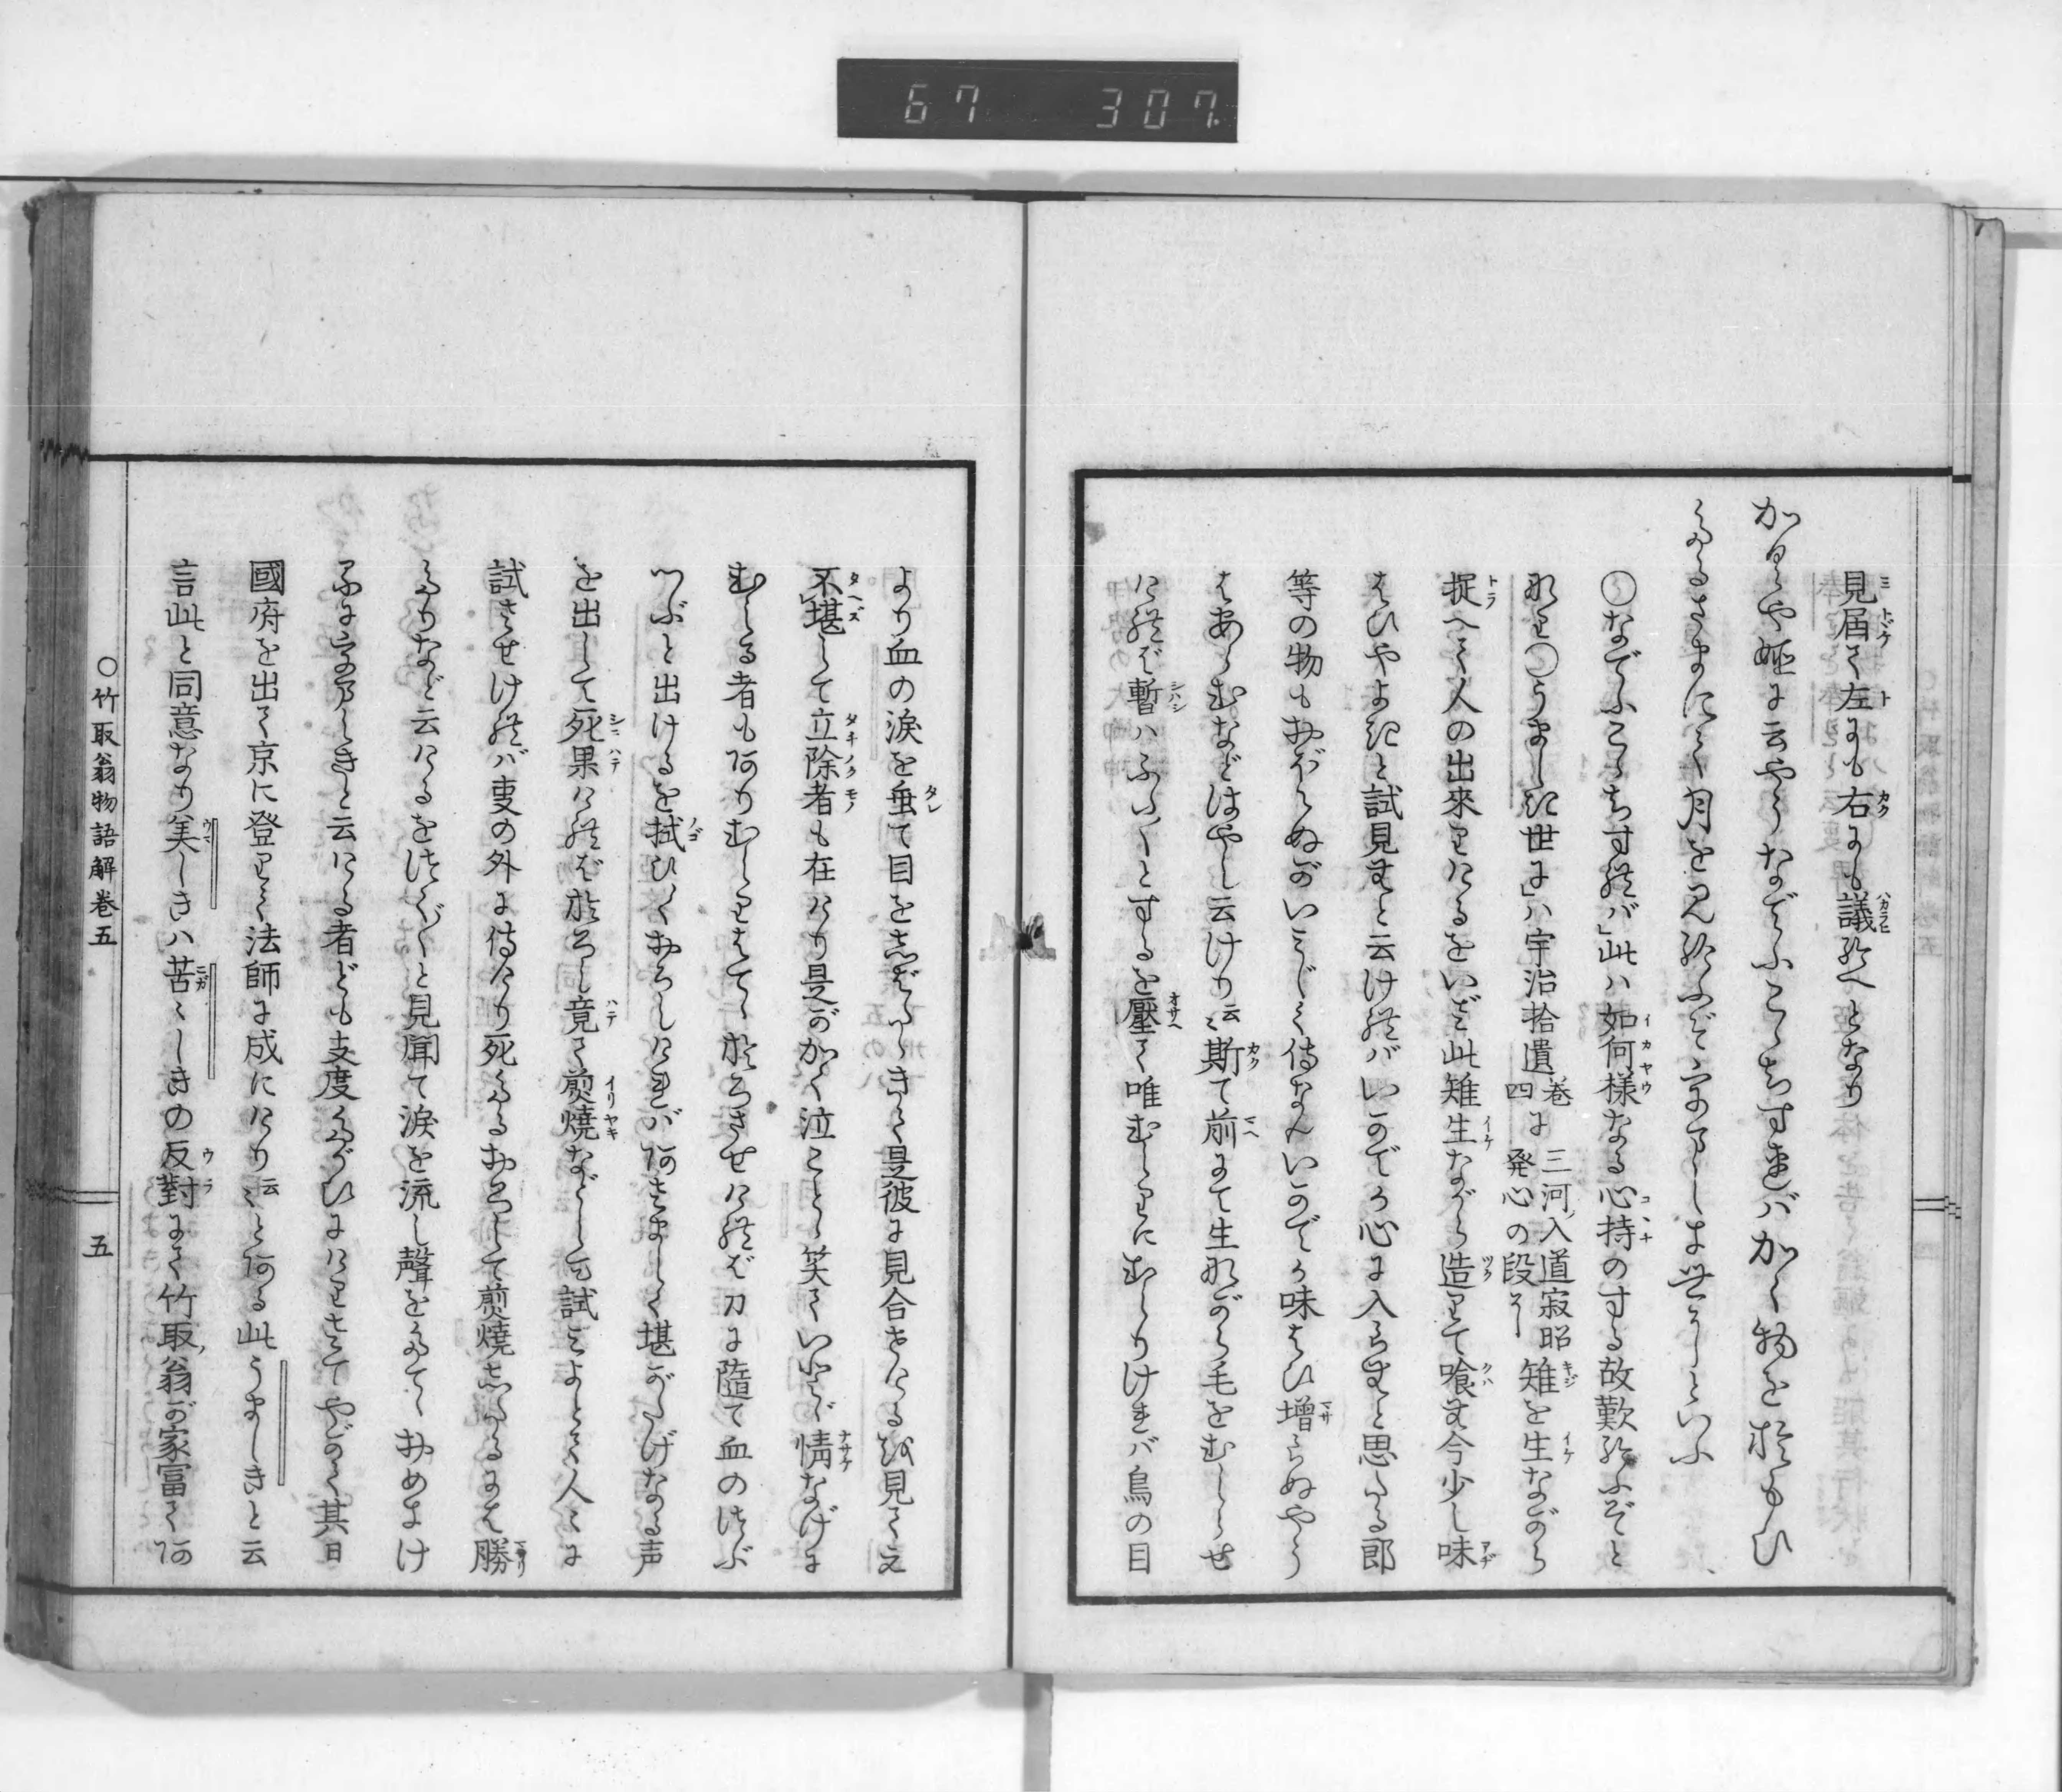 67 307
見屆て左にも右にも議給へとなり
かぐや姫に云やうなでふこゝちすればかく物をおもひ
たるさまにて月を見給ふぞうましき世にといふ
○なでふこゝちすれバ」此ハ如何様なる心持のする故歎給ふぞと
なり○うましき世に」ハ宇治拾遺巻四に三河入道寂昭発心の段に雉を生ながら
捉へて人の出來りけるをいざ此雉生ながら造りて喰む今少し味
はひやよきと試見むと云けれバいかでか心に入らむと思たる郎
等の物もおぼえぬがいみじく侍なんいかでか味はひ増らぬやう
はあらむなどはやし云けり云〻斯て前にて生ながら毛をむしらせ
けれバ暫ハふた〱とするを壓て唯むしりにむしりけれバ鳥の目
より血の涙を垂て目をしばたゝきて是彼に見合せけるを見てえ
不堪して立除者も在けり是がかく泣こと〻笑ていとゞ情なげに
むしる者もありむしりはてゝおろさせけれバ刀に隨て血のつぶ
〱と出けるを拭ひ〱おろしけれバあさましく堪がたげなる声
を出して死果けれバおろし竟て煎燒などして試みよとて人〻に
試させけれバ事の外に侍けり死たるおろして煎燒したるにハ勝
たりなど云けるをつく〲と見聞て涙を流し聲をたてゝおめきけ
るにうましきと云ける者ども支度たがひにけりさてやがて其日
國府を出て京に登りて法師に成にけり云〻とある此うましきと云
言此と同意なり美しきハ苦〻しきの反對にて竹取翁が家富てあ
○竹取翁物語解巻五
五